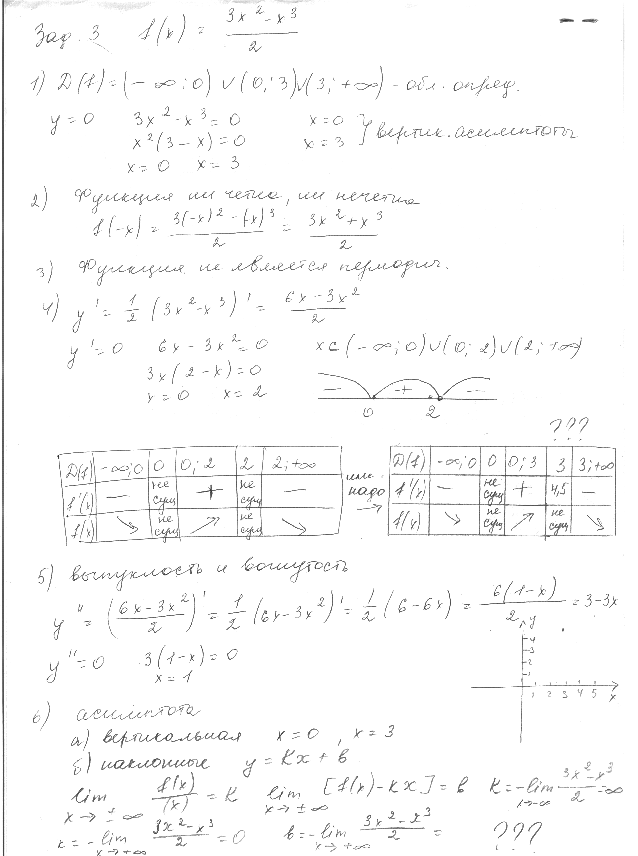 Зад. 3 f(x) = (3x² - x³)/2
1) D(f) = (-∞; 0) ∪ (0; 3) ∪ (3; +∞) - обл. опред.
y = 0 3x² - x³ = 0 x = 0
x²(3 - x) = 0 x = 3 } вертик. асимптоты
x = 0 x = 3
2) Функция ни четна, ни нечетна
f(-x) = (3(-x)² - (-x)³)/2 = (3x² + x³)/2
3) Функция не является периодич.
4) y' = 1/2 (3x² - x³)' = (6x - 3x²)/2
y' = 0 6x - 3x² = 0 x ∈ (-∞; 0) ∪ (0; 2) ∪ (2; +∞)
3x(2 - x) = 0
x = 0 x = 2
- + -
0 2
???
D(f) -∞; 0 0 0; 2 2 2; +∞
f'(x) - не сущ + не сущ -
f(x) ↘ не сущ ↗ не сущ ↘
или надо →
D(f) -∞; 0 0 0; 3 3 3; +∞
f'(x) - не сущ + 4,5 -
f(x) ↘ не сущ ↗ не сущ ↘
5) выпуклость и вогнутость
y'' = ((6x - 3x²)/2)' = 1/2 (6x - 3x²)' = 1/2 (6 - 6x) = 6(1 - x)/2 = 3 - 3x
y'' = 0 3(1 - x) = 0
x = 1
y
4
3
2
1
1 2 3 4 5 x
6) асимптота
а) вертикальная x = 0, x = 3
б) наклонные y = Kx + b
lim x→±∞ f(x)/(x) = K lim x→±∞ [f(x) - Kx] = b K = -lim x→-∞ (3x² - x³)/2 = ∞
K = -lim x→+∞ (3x² - x³)/2 = 0 b = -lim x→+∞ (3x² - x³)/2 = ???